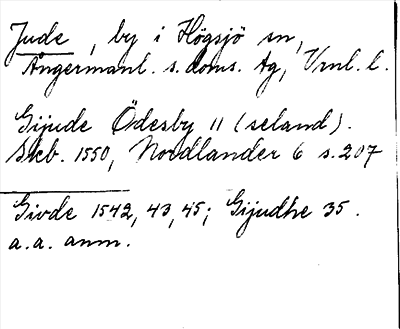 Jude, by i Högsjö sn,
Ångermanl. s. doms. tg, Vrnl. l.
Gijude Ödesby 11 (seland).
Skb. 1550, Nordlander 6 s. 207
Givde 1542, 43, 45; Gijudhe 35.
a. a. anm.